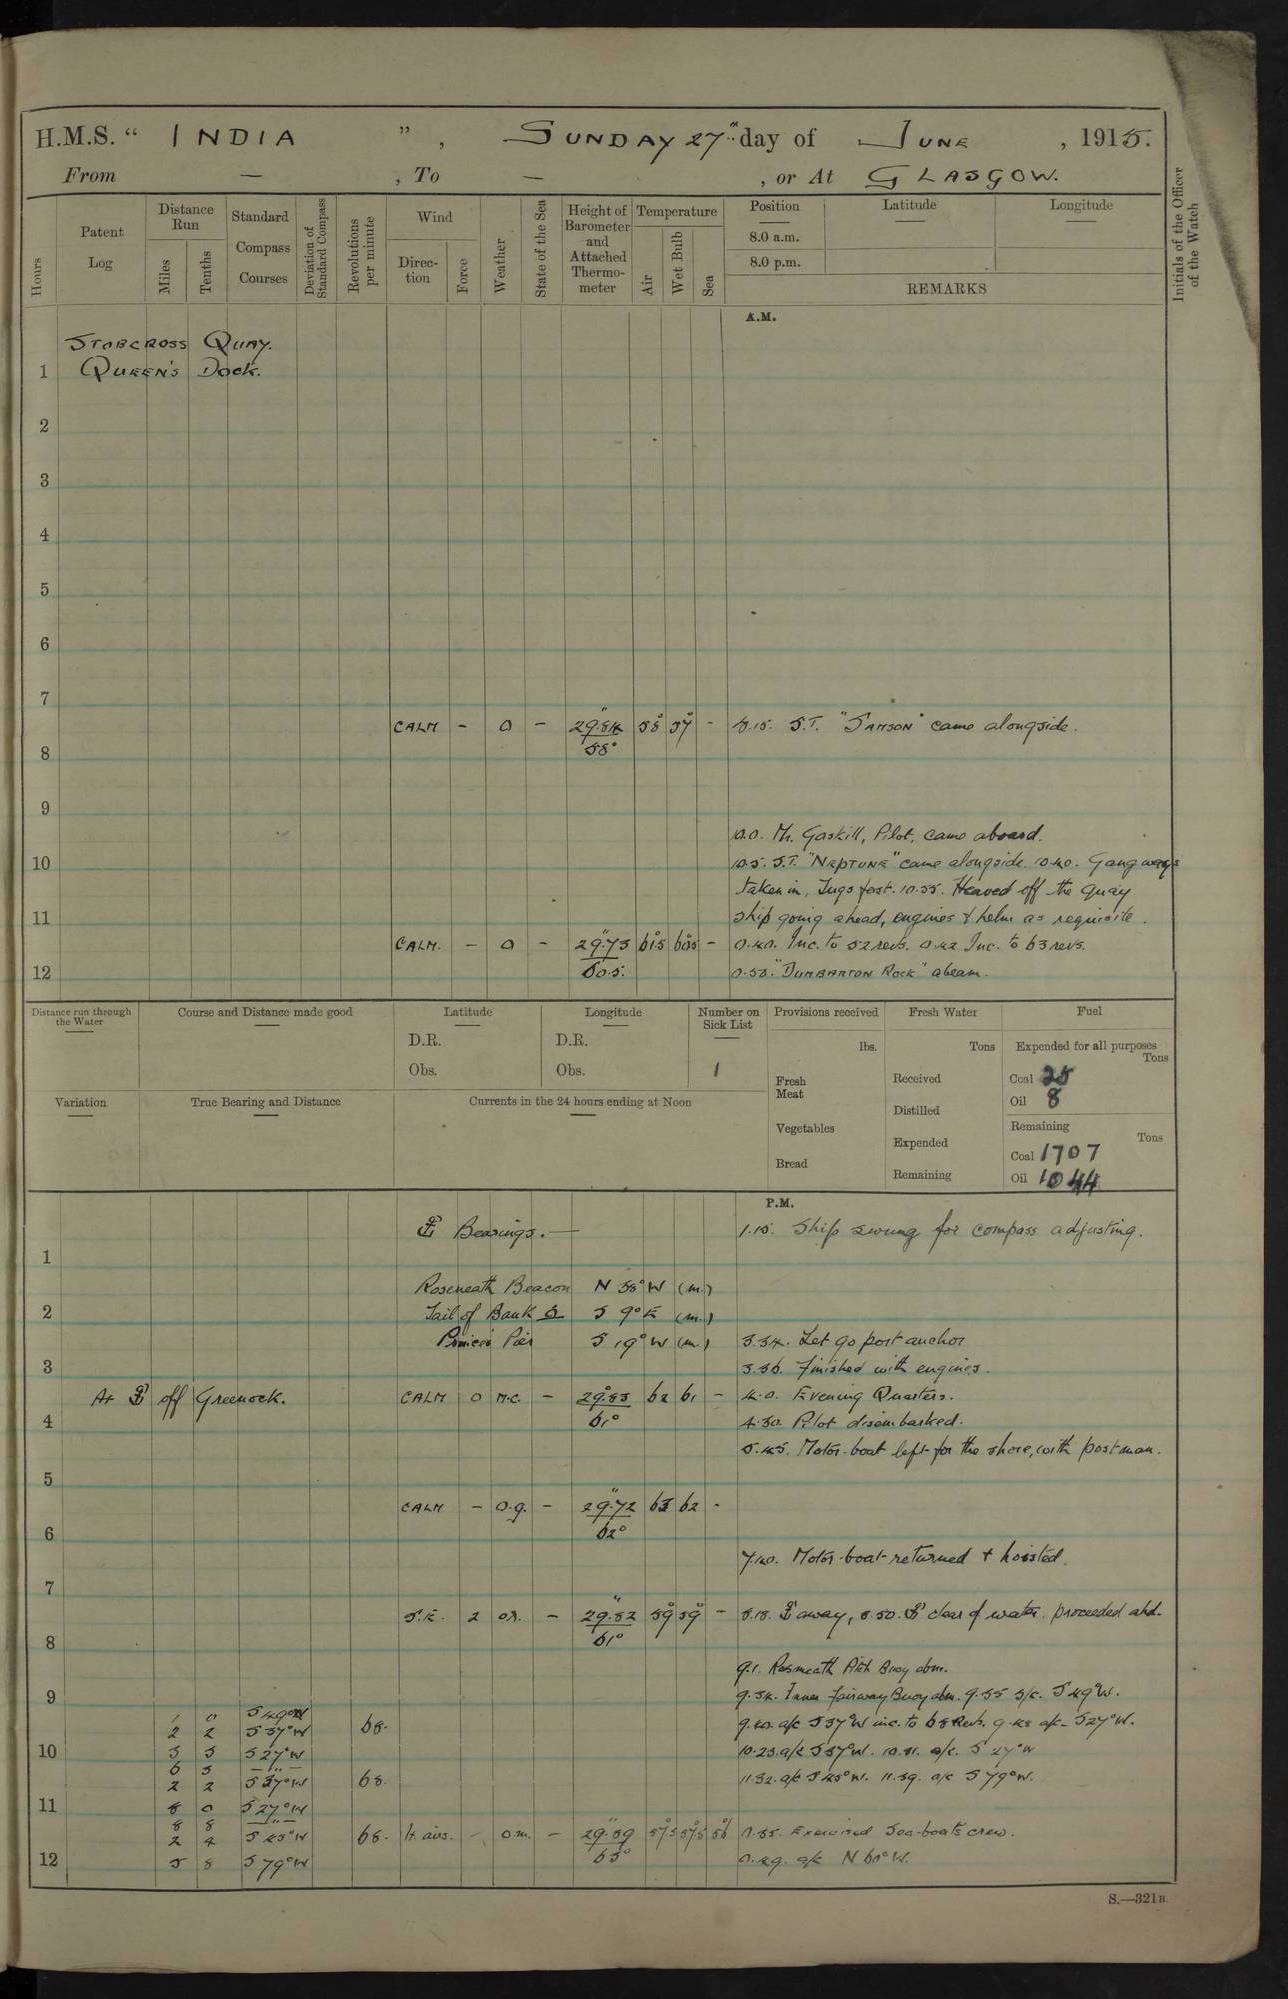 H.M.S. “ INDIA ” , SUNDAY 27th day of JUNE , 1915.
From — , To — , or At GLASGOW.
Hours
Patent Log
Distance Run
Miles
Tenths
Standard Compass Courses
Deviation of Standard Compass
Revolutions per minute
Wind
Direction
Force
Weather
State of the Sea
Height of Barometer and Attached Thermometer
Temperature
Air
Wet Bulb
Sea
Position
8.0 a.m.
8.0 p.m.
Latitude
Longitude
REMARKS
Initials of the Officer of the Watch
A.M.
STOBCROSS QUAY.
1 QUEEN'S DOCK.
2
3
4
5
6
7
CALM - O - 29".84 58° 57° - 8.15. S.T. "SAMSON" came alongside.
58°
8
9
10.0. Mr. Gaskill, Pilot, came aboard.
10 10.5. S.T. "NEPTUNE" came alongside. 10.40. Gangways
taken in, Tugs fast. 10.55. Heaved off the quay
11 ship going ahead, engines & helm as requisite.
CALM. - O - 29".73 61.5 60.5 - 0.40. Inc. to 52 revs. 0.42 Inc. to 63 revs.
60.5.
12 0.50. "DUMBARTON ROCK" abeam.
Distance run through the Water
Course and Distance made good
Latitude
D.R.
Obs.
Longitude
D.R.
Obs.
Number on Sick List
1
Provisions received
lbs.
Fresh Meat
Vegetables
Bread
Fresh Water
Tons
Received
Distilled
Expended
Remaining
Fuel
Expended for all purposes
Tons
Coal 25
Oil 8
Remaining
Tons
Coal 1707
Oil 1044
Variation
True Bearing and Distance
Currents in the 24 hours ending at Noon
P.M.
Bearings.— 1.15. Ship swung for compass adjusting.
1
Roseneath Beacon N 58° W (m.)
2 Tail of Bank S 9° E (m.)
Pier S 19° W (m) 3.34. Let go port anchor
3 3.36. Finished with engines.
At off Greenock. CALM O M.C. - 29.83 62 61 - 4.0. Evening Quarters.
61°
4 4.30. Pilot disembarked.
5.45. Motor-boat left for the shore, with postman.
5
CALM - O.g. - 29".72 63 62 -
62°
6
7.40. Motor-boat returned & hoisted.
7
S.E. 2 o.r. - 29".82 59° 59° - 8.18. away, 8.50. clear of water. proceeded ahd.
61°
8
9.1. Rosneath Patch Buoy abm.
9 9.34. Inner Fairway Buoy abm. 9.35 s/c. S 49° W.
1 0 S 49° W
2 2 S 37° W 68. 9.40. a/c S 37° W inc. to 68 Revs. 9.48 a/c S 27° W.
10 3 5 S 27° W 10.23. a/c S 37° W. 10.31. a/c. S 27° W
6 5 — " —
2 2 S 37° W 68. 11.32. a/c S 45° W. 11.39. a/c S 79° W.
11 8 0 S 27° W
8 8 — " —
2 4 S 45° W 68. lt. airs. - o.m. - 29".89 57.5 57.5 56 0.35. Exercised Sea-boat's crew.
63°
12 5 8 S 79° W 0.49. a/c N 60° W.
S.—321B.